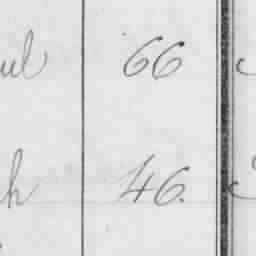 ul 66
h 46.